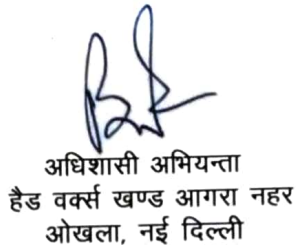 अधिशासी अभियन्ता
हैड वर्क्स खण्ड आगरा नहर
ओखला, नई दिल्ली